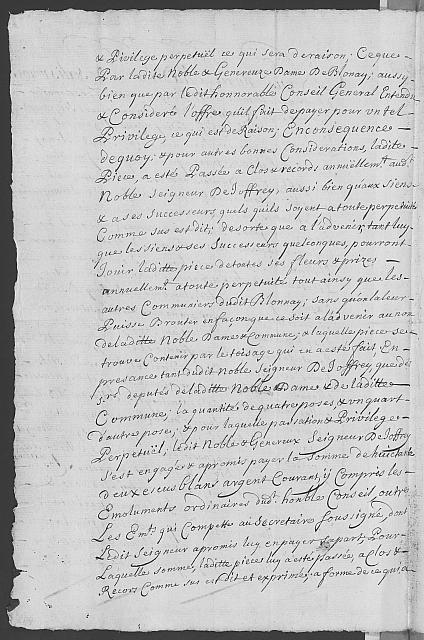 & Privilege perpetuel ce qui sera de raison; Ce que
Par ladite Noble & Genereuze Dame De Blonay; aussy
bien que par Ledit honnorable Conseil General Entendu
& Consideré l'offre qu'il fait de payer pour un tel
Privilege, ce qui est de Raison; En consequence
de quoy, & pour autres bonnes Considerations, ladite
Piece, a esté Passée a Clos & records annuellemt. audt.
Noble Seigneur De Joffrey, aussi bien qu'aux Siens
& a ses Successeurs quels qu'ils soyent a toute perpetuité
Comme sus est dit; de sorte que a l'advenir, tant luy
que les Siens & ses Successeurs quelconques, pourront
Jouir laditte piece de toutes ses fleurs & prizes
annuellemt. a toute perpetuité tout ainsy que les
autres Communiers dudit Blonnay; sans qu'on la leur
Puisse Brouter en façon que ce soit a l'advenir au nom
de laditte Noble Dame & Commune; & laquelle piece se
trouve Contenir par le toisage qui en a esté fait, En
presance tant dudit Noble Seigneur De Joffrey, que des
Srs. deputés de laditte Noble Dame & de laditte
Commune; la quantité de quatre poses, & un quart
d'autre pose; & pour laquelle passation & Privilege
Perpetuel, ledit Noble & Genereux Seigneur De Joffrey
s'est engagé & a promis payer la Somme de huictante
deux escus blans argent Courant, y Compris les
Emoluments ordinaires dudt. honble Conseil, outre
Les Emts. qui Compette au Secretaire Soussigné, dont
Ledit Seigneur a promis luy en payer sa part; Pour
Laquelle somme, ladite piece luy a esté passée, a Clos &
Recors Comme sus est dit et exprimé, a forme de ce qui a